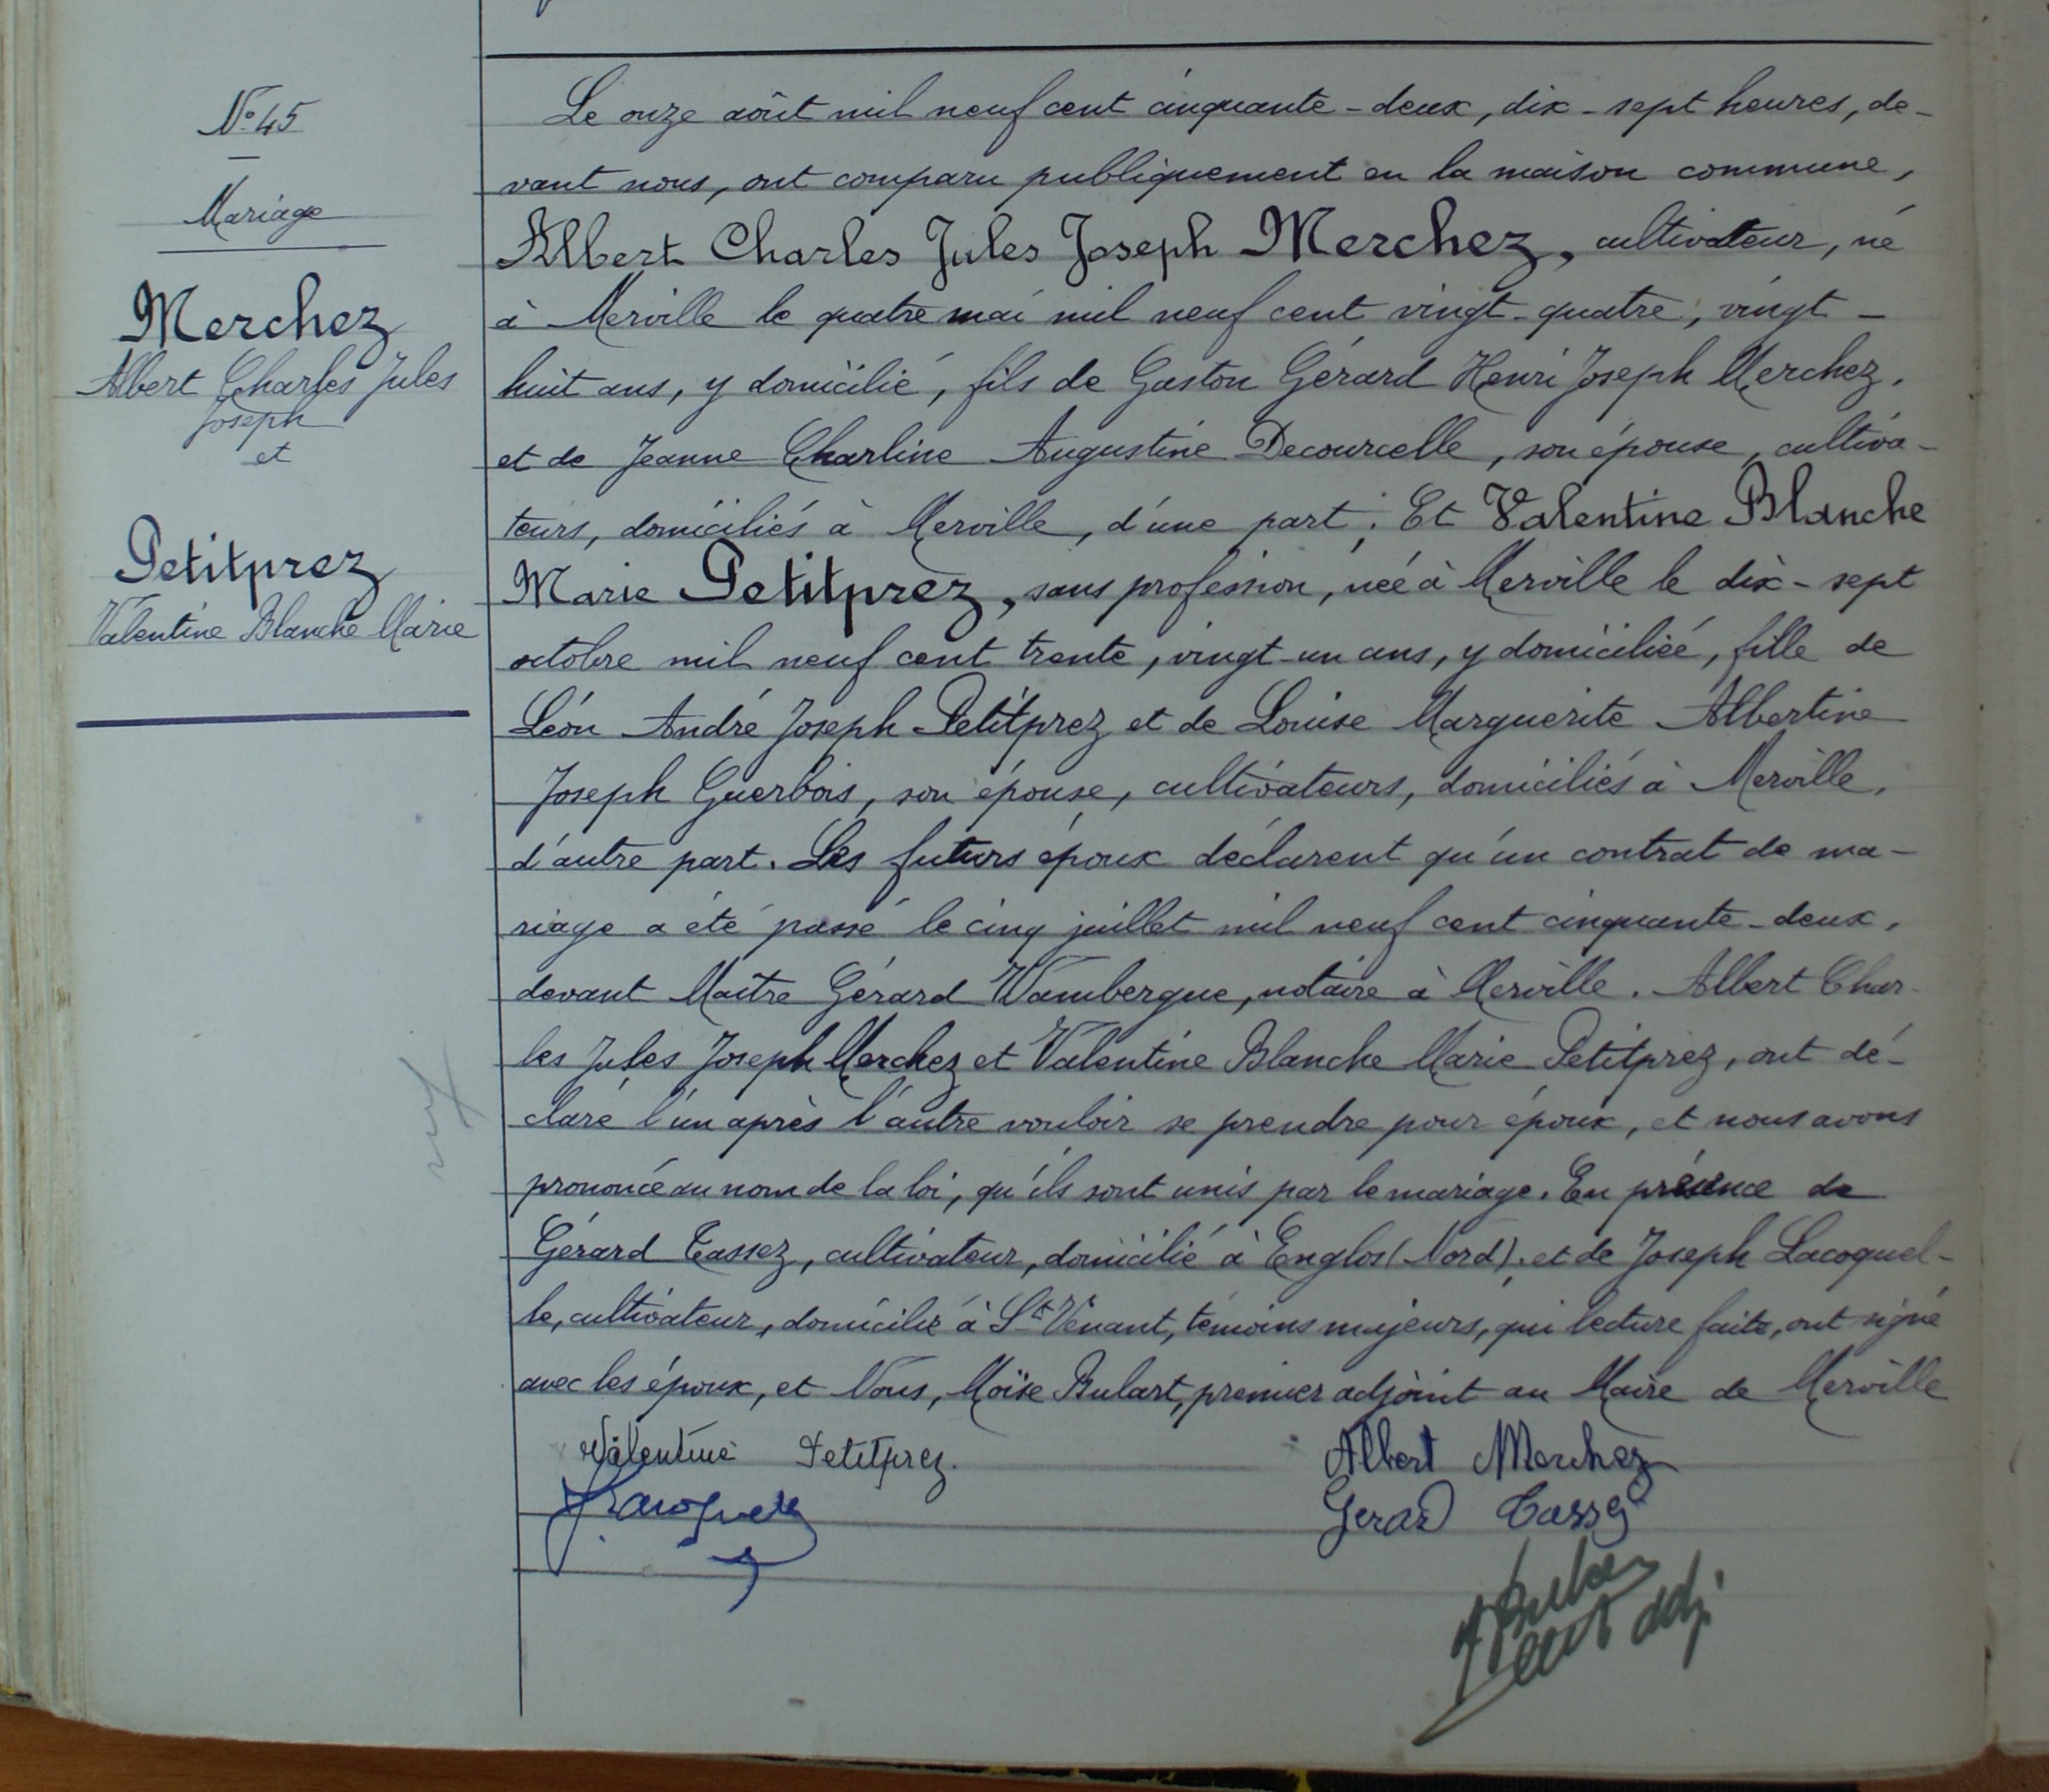 N° 45
Mariage
Merchez
Albert Charles Jules
Joseph
et
Petitprez
Valentine Blanche Marie
Le onze août mil neuf cent cinquante-deux, dix-sept heures, de-
vant nous, ont comparu publiquement en la maison commune,
Albert Charles Jules Joseph Merchez, cultivateur, né
à Merville le quatre mai mil neuf cent vingt-quatre, vingt-
huit ans, y domicilié, fils de Gaston Gérard Henri Joseph Merchez,
et de Jeanne Charline Augustine Decourcelle, son épouse, cultiva-
teurs, domiciliés à Merville, d'une part; Et Valentine Blanche
Marie Petitprez, sans profession, née à Merville le dix-sept
octobre mil neuf cent trente, vingt-un ans, y domiciliée, fille de
Léon André Joseph Petitprez et de Louise Marguerite Albertine
Joseph Guerbois, son épouse, cultivateurs, domiciliés à Merville,
d'autre part. Les futurs époux déclarent qu'un contrat de ma-
riage a été passé le cinq juillet mil neuf cent cinquante-deux,
devant Maître Gérard Wambergue, notaire à Merville. Albert Char-
les Jules Joseph Merchez et Valentine Blanche Marie Petitprez, ont dé-
claré l'un après l'autre vouloir se prendre pour époux, et nous avons
prononcé au nom de la loi, qu'ils sont unis par le mariage. En présence de
Gérard Tassez, cultivateur, domicilié à Englos (Nord), et de Joseph Lacoquel-
le, cultivateur, domicilié à St Venant, témoins majeurs, qui lecture faite, ont signé
avec les époux, et Nous, Moïse Bulart, premier adjoint au Maire de Merville
Valentine Petitprez.
Albert Merchez
Gerard Tassez
adj.